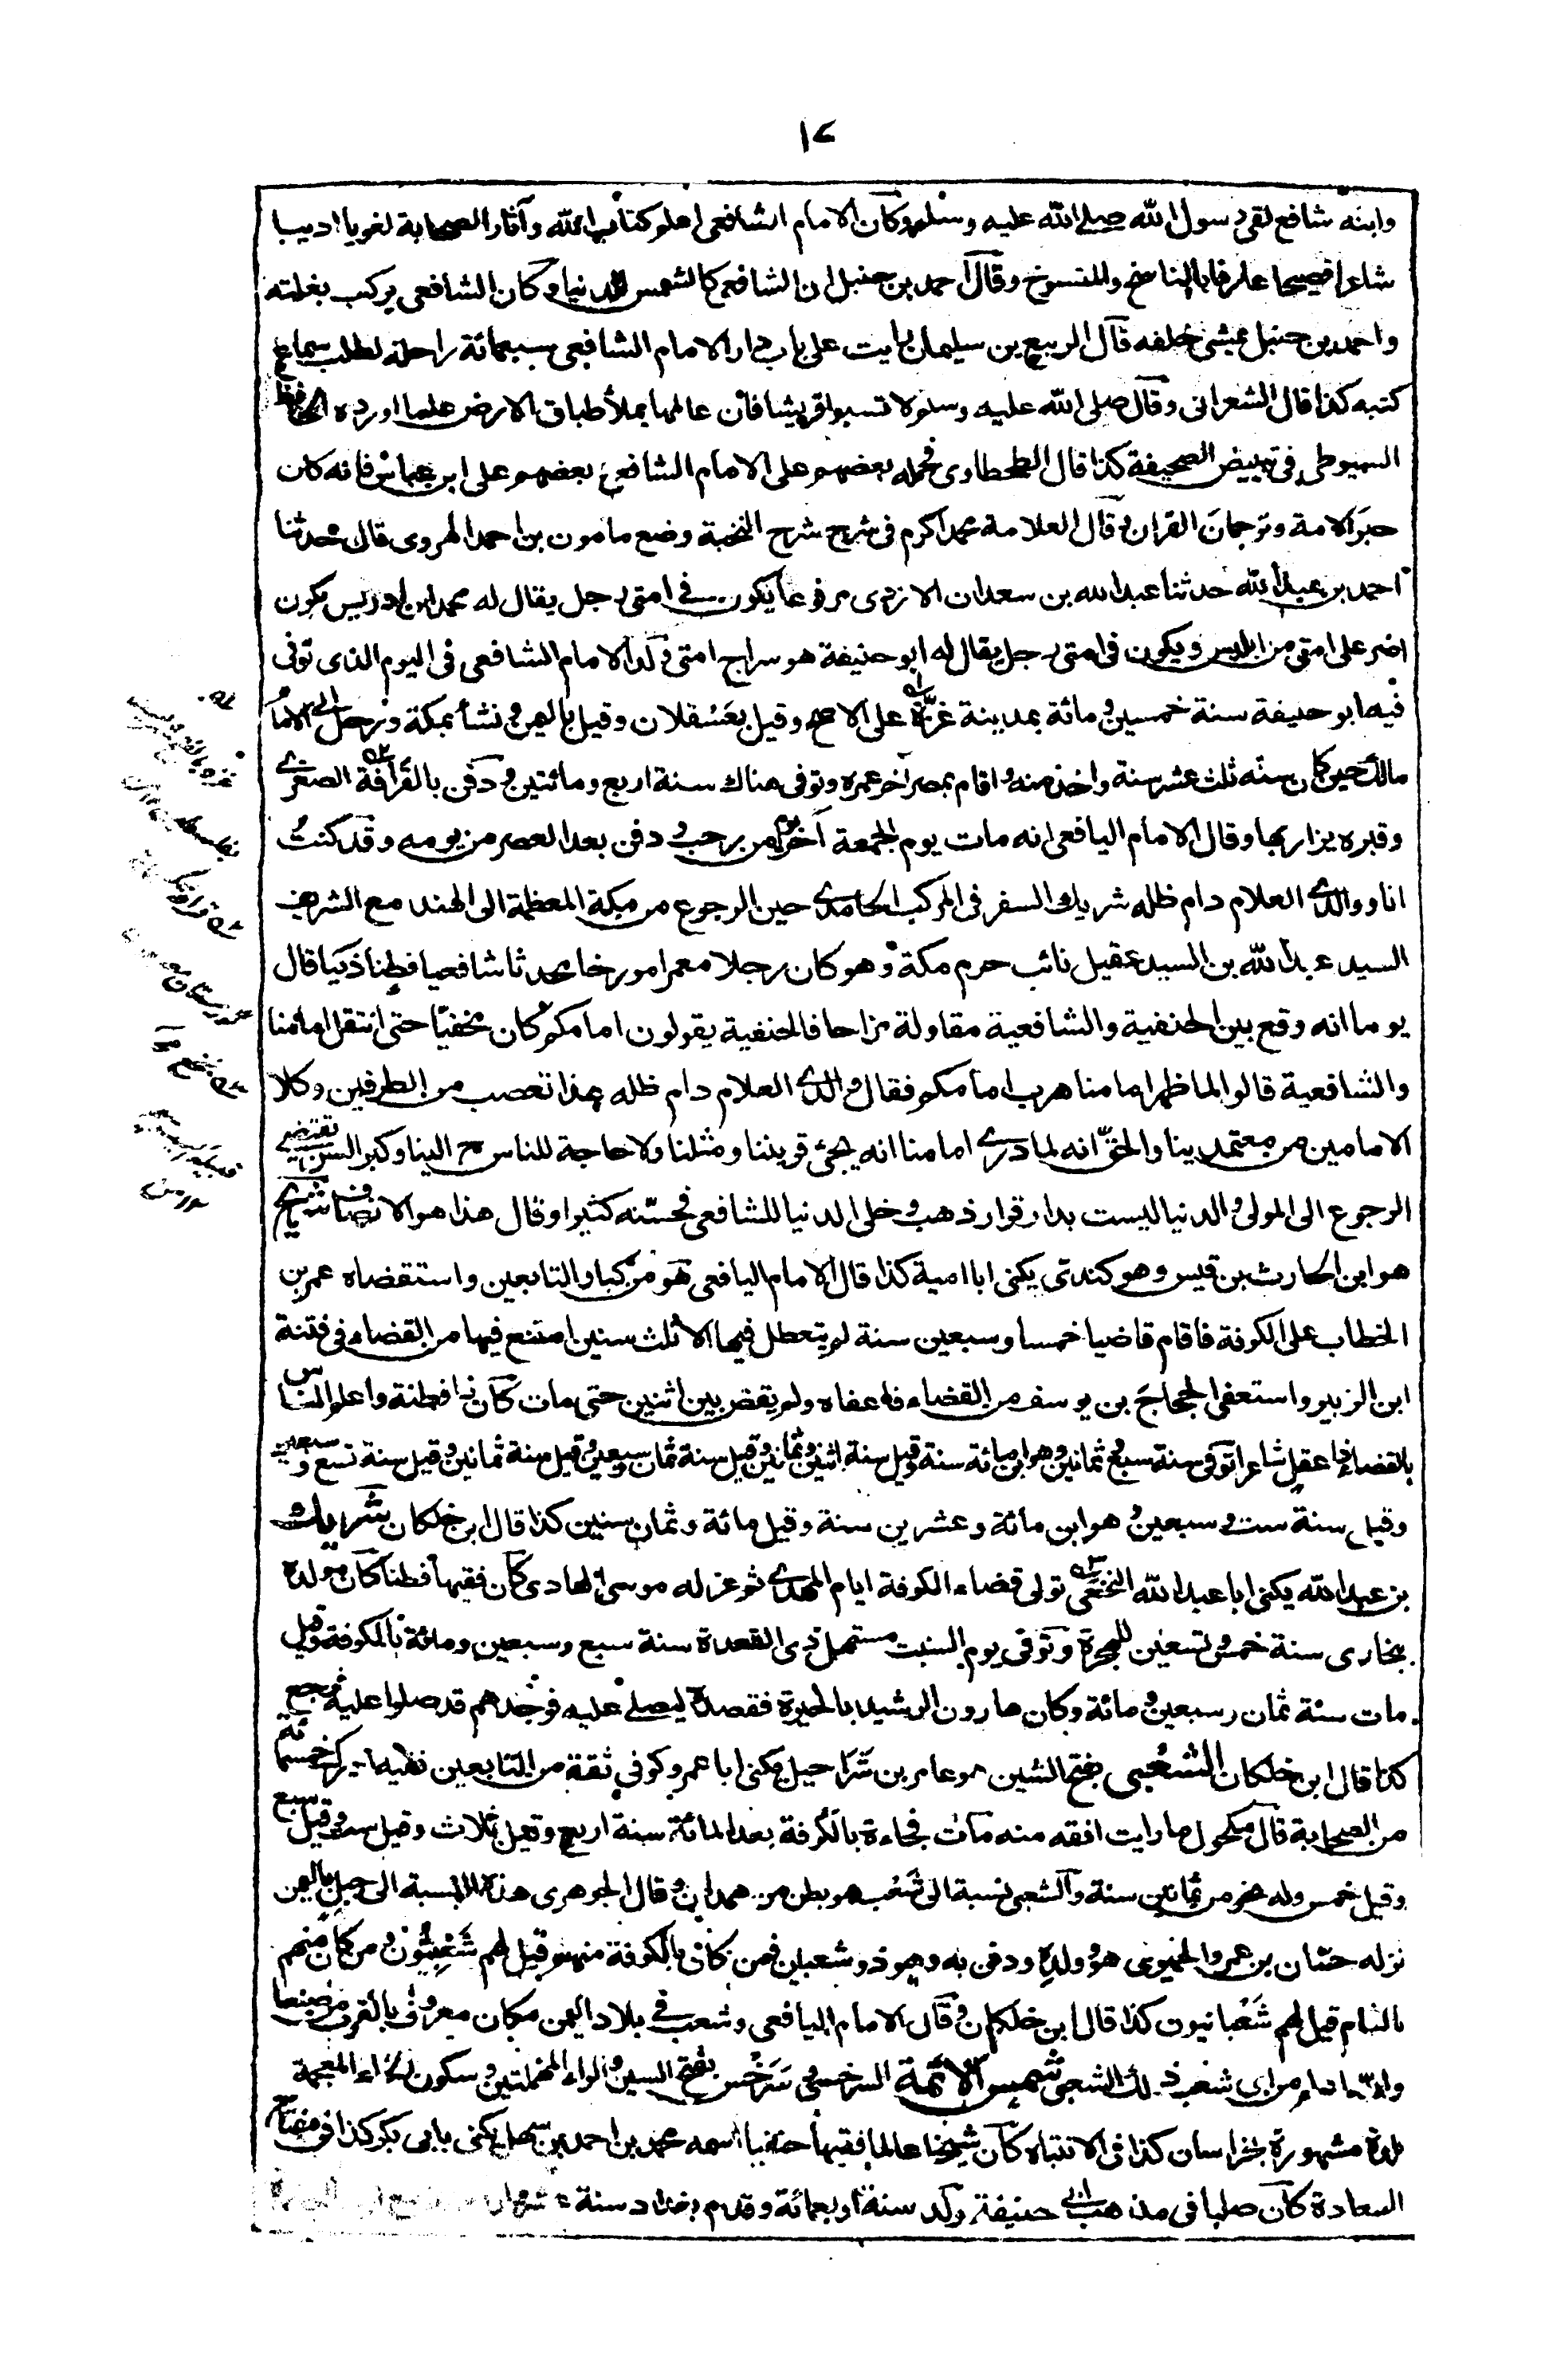 ١٧
وابنه شافع لقى رسول الله صلى الله عليه وسلم وكان الامام الشافعى اعلم كتاب الله وآثار الصحابة لغويا اديبا
شاعرا فصيحا عارفا بالناسخ والمنسوخ وقال احمد بن حنبل ان الشافعى كالشمس للدنيا وكان الشافعى يركب بغلته
واحمد بن حنبل يمشى خلفه قال الربيع بن سليمان رايت على باب دار الامام الشافعى سبعمائة راحلة لطلب سماع
كتبه كذا قال الشعرانى وقال صلى الله عليه وسلم لا تسبوا قريشا فان عالمها يملأ طباق الارض علما اورده الحافظ
السيوطى فى تبييض الصحيفة كذا قال الطحطاوى فحمله بعضهم على الامام الشافعى وبعضهم على ابن عباس فانه كان
حبر الامة وترجمان القران وقال العلامة محمد اكرم فى شرح شرح النخبة وضع مامون بن احمد الهروى قال حدثنا
احمد بن عبد الله حدثنا عبد الله بن سعدان الازدى مرفوعا يكون فى امتى رجل يقال له محمد ابن ادريس يكون
اضر على امتى من ابليس ويكون فى امتى رجل يقال له ابو حنيفة هو سراج امتى ولد الامام الشافعى فى اليوم الذى توفى
فيه ابو حنيفة سنة خمسين ومائة بمدينة غزّة على الاصح وقيل بعَسْقلان وقيل باليمن ونشأ بمكة ورحل الى الامام
مالك حين كان سنّه ثلث عشر سنة واخذ منه واقام بمصر آخر عمره وتوفى هناك سنة اربع ومائتين ودفن بالقَرافة الصغرى
وقبره يزار بها وقال الامام اليافعى انه مات يوم الجمعة آخر يوم من رجب ودفن بعد العصر من يومه وقد كنتُ
انا ووالدى العلام دام ظله شريك السفر فى المركب الحامدى حين الرجوع من مكة المعظمة الى الهند مع الشريف
السيد عبد الله بن السيد عقيل نائب حرم مكة وهو كان رجلا معمرا مورخا محدثا شافعيا فطِنا ذكيا قال
يوما انه وقع بين الحنفية والشافعية مقاولة مزاحا فالحنفية يقولون امامكم كان مخفيّا حتى انتقل امامنا
والشافعية قالوا لما ظهر امامنا هرب امامكم فقال والدى العلام دام ظله هذا تعصب من الطرفين وكلا
الامامين من معتمد ديننا والحقّ انه لما درى امامنا انه يجئ قريننا ومثلنا ولا حاجة للناس ح الينا وكبر السن يقتضى
الرجوع الى المولى والدنيا ليست بدار قرار ذهب وخلى الدنيا للشافعى فحسّنه كثيرا وقال هذا هو الانصاف شريح
هو ابن الحارث بن قيس وهو كندى يكنى ابا امية كذا قال الامام اليافعى هو من كبار التابعين واستقضاه عمر بن
الخطاب على الكوفة فاقام قاضيا خمسا وسبعين سنة لم يتعطل فيها الا ثلث سنين امتنع فيها من القضاء فى فتنة
ابن الزبير واستعفى الحجاج بن يوسف من القضاء فاعفاه ولم يقض بين اثنين حتى مات كان ذا فطنة واعلم الناس
بالقضاء ذا عقل شاعرا توفى سنة سبع وثمانين وهو ابن مائة سنة وقيل سنة اثنين وثمانين وقيل سنة ثمان وسبعين وقيل سنة ثمانين وقيل سنة تسع وسبعين
وقيل سنة ست وسبعين وهو ابن مائة وعشرين سنة وقيل مائة وثمان سنين كذا قال ابن خلكان شريك
بن عبد الله يكنى ابا عبد الله النخعى تولى قضاء الكوفة ايام المهدى ثم عزله موسى الهادى كان فقيها فطنا كان مولده
بخارى سنة خمس وتسعين للهجرة وتوفى يوم السبت مستهل ذى القعدة سنة سبع وسبعين ومائة بالكوفة وقيل
مات سنة ثمان وسبعين ومائة وكان هارون الرشيد بالحيرة فقصده ليصلى عليه فوجدهم قد صلوا عليه فرجع
كذا قال ابن خلكان الشعبى بفتح الشين هو عامر بن شَراحيل يكنى ابا عمرو كوفى ثقة من التابعين فقيها ادرك خمسمائة
من الصحابة قال مكحول ما رايت افقه منه مات فجاءة بالكوفة بعد المائة سنة اربع وقيل ثلاث وقيل ست وقيل سبع
وقيل خمس وله نحو من ثمانين سنة والشعبى نسبة الى شَعْب هو بطن من همدان وقال الجوهرى هذه النسبة الى جبل باليمن
نزله حسّان بن عمرو الحميرى هو وولده ودفن به وهو ذو شعبين فمن كان بالكوفة منهم قيل لهم شَعْبِيُّون ومن كان منهم
بالشام قيل لهم شَعْبانيون كذا قال ابن خلكان وقال الامام اليافعى وشعب فى بلاد اليمن مكان معروف بالقرب من صنعا
من اى شعب ذلك الشعبى شمس الائمة السرخسى سَرَخْس بفتح السين والراء المهملتين وسكون الخاء المعجمة
بلدة مشهورة بخراسان كذا فى الانتباه كان شيخا عالما فقيها حنفيا اسمه محمد بن احمد بن سهل يكنى بابى بكر كذا فى مفتاح
السعادة كان صلبا فى مذهب ابى حنيفة ولد سنة اربعمائة وقدم بغداد سنة